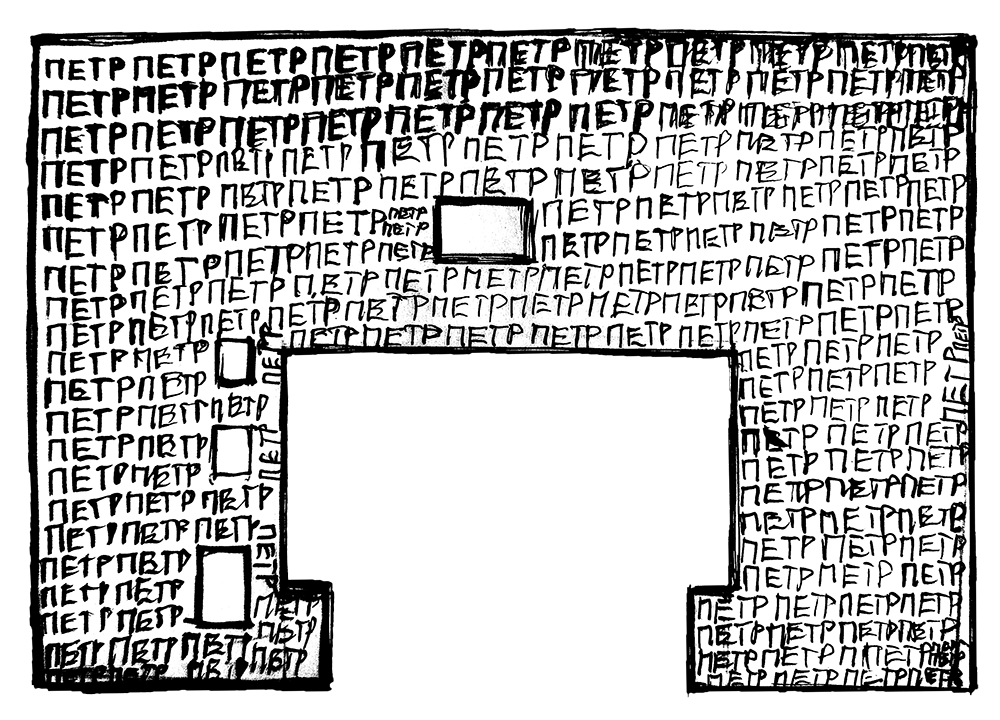 ПЕТР ПЕТР ПЕТР ПЕТР ПЕТР ПЕТР ПЕТР ПЕТР ПЕТР ПЕТР ПЕТР
ПЕТР ПЕТР ПЕТР ПЕТР ПЕТР ПЕТР ПЕТР ПЕТР ПЕТР ПЕТР ПЕТР
ПЕТР ПЕТР ПЕТР ПЕТР ПЕТР ПЕТР ПЕТР ПЕТР ПЕТР ПЕТР ПЕТР
ПЕТР ПЕТР ПЕТР ПЕТР ПЕТР ПЕТР ПЕТР ПЕТР ПЕТР ПЕТР ПЕТР
ПЕТР ПЕТР ПЕТР ПЕТР ПЕТР ПЕТР ПЕТР ПЕТР ПЕТР ПЕТР ПЕТР
ПЕТР ПЕТР ПЕТР ПЕТР ПЕТР ПЕТР ПЕТР ПЕТР ПЕТР ПЕТР ПЕТР
ПЕТР ПЕТР ПЕТР ПЕТР ПЕТР ПЕТР ПЕТР ПЕТР ПЕТР ПЕТР ПЕТР
ПЕТР ПЕТР ПЕТР ПЕТР ПЕТР ПЕТР ПЕТР ПЕТР ПЕТР ПЕТР ПЕТР
ПЕТР ПЕТР ПЕТР ПЕТР ПЕТР ПЕТР ПЕТР ПЕТР ПЕТР ПЕТР ПЕТР
ПЕТР ПЕТР ПЕТР ПЕТР ПЕТР ПЕТР ПЕТР ПЕТР ПЕТР ПЕТР ПЕТР
ПЕТР ПЕТР ПЕТР ПЕТР ПЕТР ПЕТР
ПЕТР ПЕТР ПЕТР ПЕТР ПЕТР
ПЕТР ПЕТР ПЕТР ПЕТР ПЕТР ПЕТР
ПЕТР ПЕТР ПЕТР ПЕТР ПЕТР
ПЕТР ПЕТР ПЕТР ПЕТР ПЕТР
ПЕТР ПЕТР ПЕТР ПЕТР ПЕТР ПЕТР
ПЕТР ПЕТР ПЕТР ПЕТР ПЕТР ПЕТР
ПЕТР ПЕТР ПЕТР ПЕТР ПЕТР
ПЕТР ПЕТР ПЕТР ПЕТР ПЕТР
ПЕТР ПЕТР ПЕТР ПЕТР ПЕТР ПЕТР ПЕТР
ПЕТР ПЕТР ПЕТР ПЕТР ПЕТР ПЕТР ПЕТР ПЕТР
ПЕТР ПЕТР ПЕТР ПЕТР ПЕТР ПЕТР ПЕТР